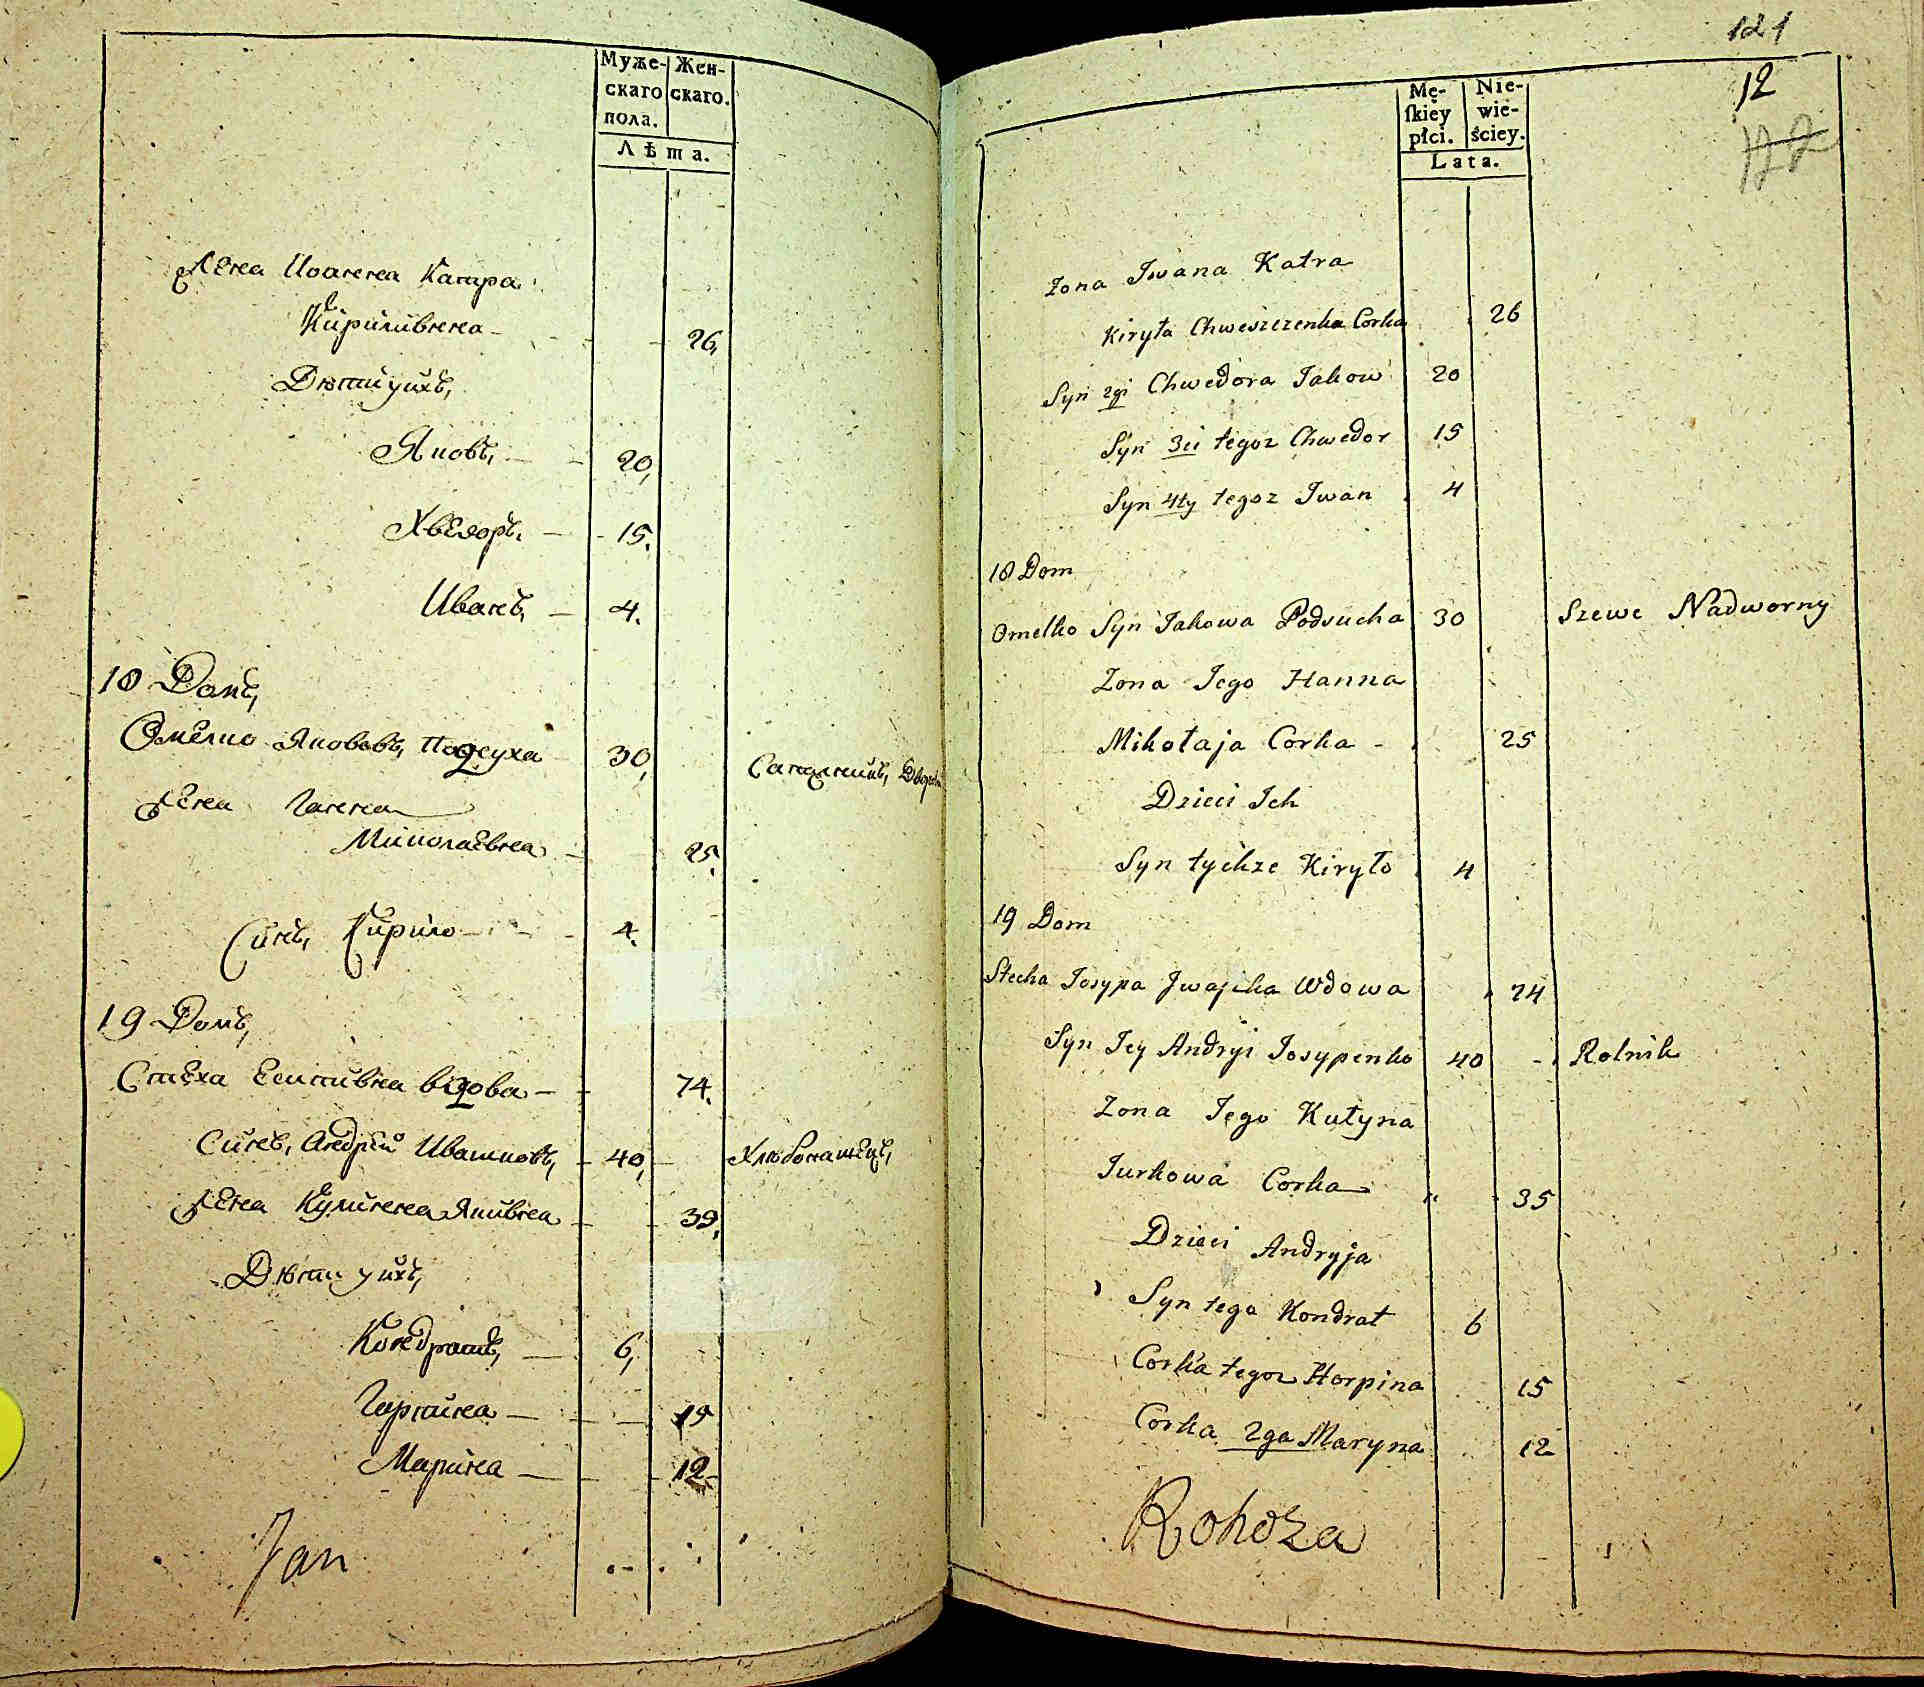 Муже-
скаго
пола.
Жен-
скаго.
Лѣта.
Жена Иванна Катра
Кирилівнна 26,
Дѣти ихъ,
Яковъ, 20,
Хведоръ, 15.
Иванъ, 4.
18 Домъ,
Омелко Яковъ, Подсуха 30, Сапожникъ,
Жена Ганна
Миколаевна 25.
Синъ, Кирило 4.
19 Домъ,
Стеха вдова 74.
Синъ, Андрій Ивашковъ, 40, Хлѣбопашецъ,
Жена 39,
Дѣти ихъ,
Кондратъ, 6,
Гарпина 15
Марина 12
Jan
121
12
122
Mę-
ſkiey
płci.
Nie-
wie-
ściey.
Lata.
Zona Iwana Katra
Kiryła Chweszczenka Corka 26
Syn 2gi Chwedora Jakow 20
Syn 3ci tegoz Chwedor 15
Syn 4ty tegoz Iwan 4
18 Dom
Omelko Syn Jakowa Podsucha 30 Szewc Nadworny
Zona Jego Hanna
Mikołaja Corka 25
Dzieci Ich
Syn tychze Kiryło 4
19 Dom
Stecha Josypa Iwaszka Wdowa 74
Syn Jey Andryi Josypenko 40 Rolnik
Zona Jego Kulyna
Jurkowa Corka 35
Dzieci Andryja
Syn tego Kondrat 6
Corka tegoz Horpina 15
Corka 2ga Maryna 12
Rohoza